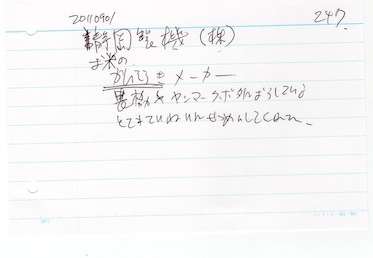 20110901
247
静岡製機(株)
お米の
かんそうきメーカー
農機をヤンマークボタ
とてもていねいにせつめいしてくれた。